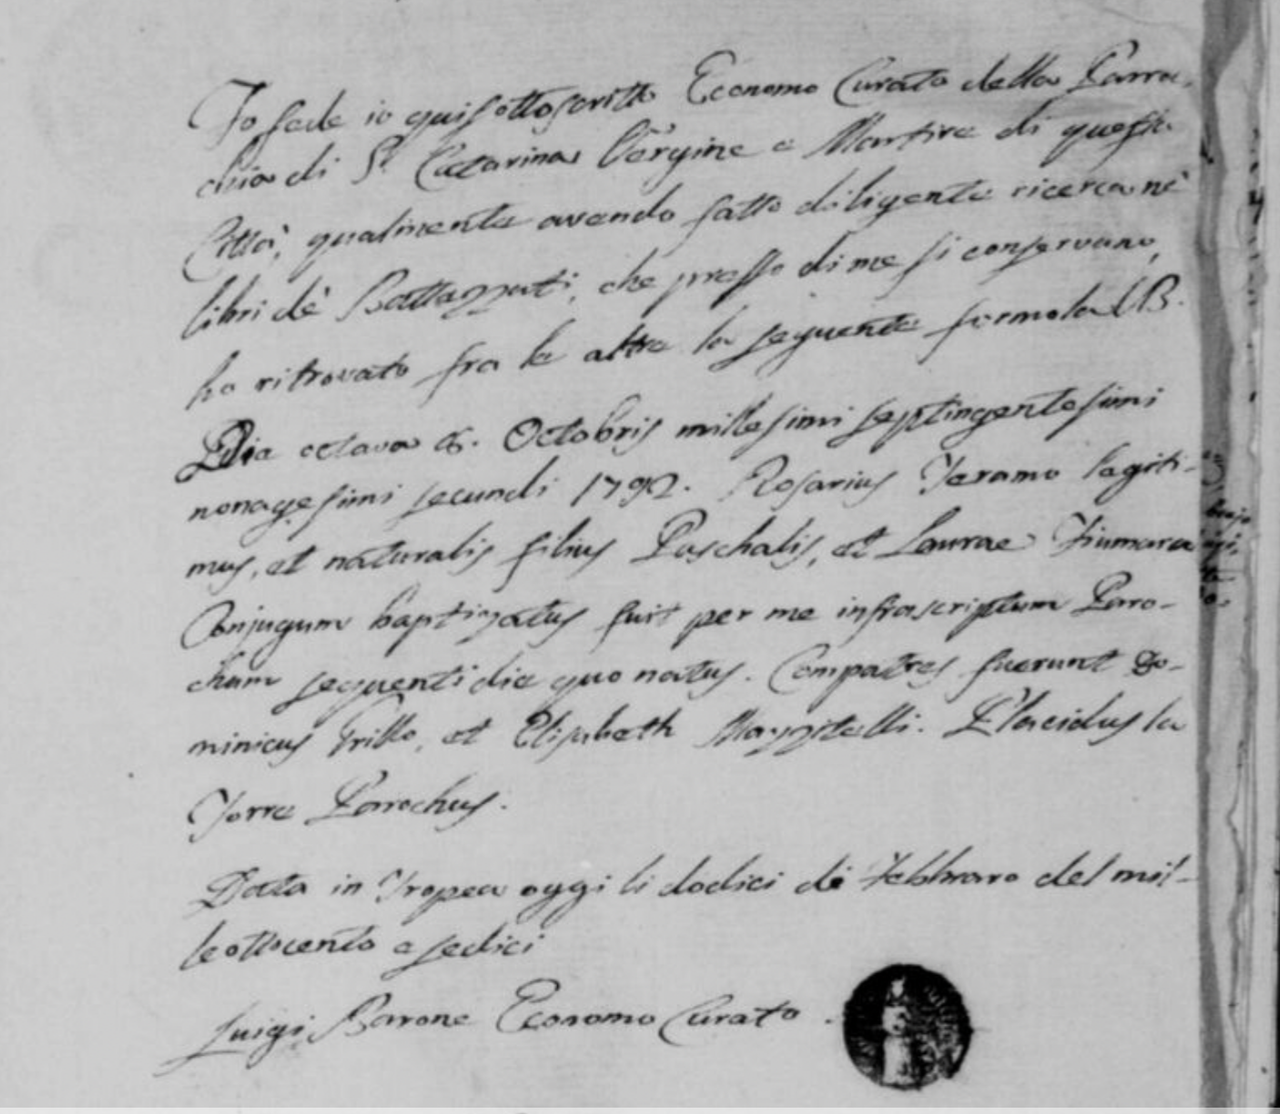 Fo fede io quì sottoscritto Economo Curato della Parro-
chia di S. Catarina Vergine e Martire di questa
Città, qualmente avendo fatto diligente ricerca nè
libri dè Battazzati, che presso di me si conservano,
ho ritrovato fra le altre la seguente formola
Die octava 8. Octobris millesimi septingentesimi
nonagesimi secundi 1792. Rosarius Teramo legiti-
mus, et naturalis filius Paschalis, et Laurae Fiumara
Conjugum baptizatus fuit per me infrascriptum Paro-
chum sequenti die quo natus. Compatres fuerunt Do-
minicus Grillo, et Elisabeth Mazzitelli. Placidus la
Torre Parochus.
Data in Tropea oggi li dodici di Febbraro del mil-
leottocento e sedici
Luigi Barone Economo Curato